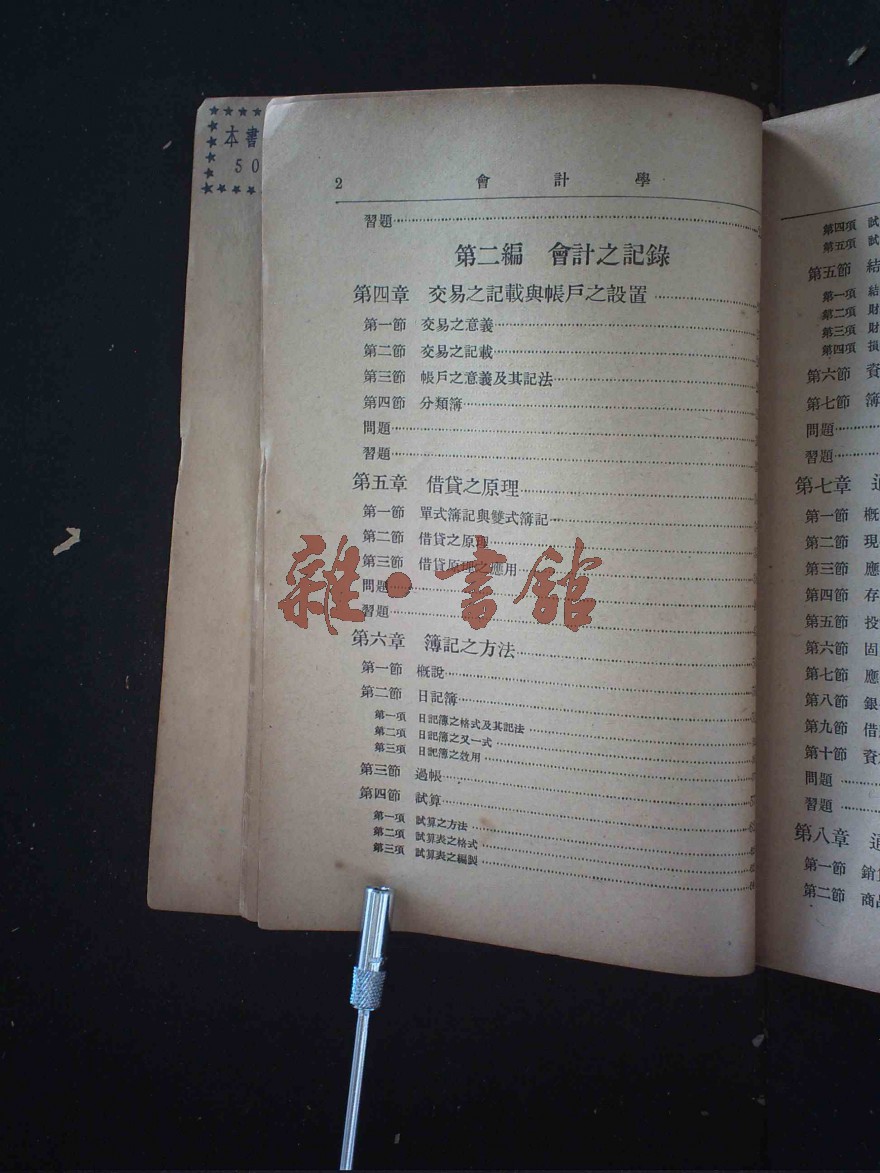 本書
50
2 會計學
習題
第二編 會計之記錄
第四章 交易之記載與帳戶之設置
第一節 交易之意義
第二節 交易之記載
第三節 帳戶之意義及其記法
第四節 分類簿
問題
習題
第五章 借貸之原理
第一節 單式簿記與雙式簿記
第二節 借貸之原理
第三節 借貸原理之應用
問題
習題
第六章 簿記之方法
第一節 概說
第二節 日記簿
第一項 日記簿之格式及其記法
第二項 日記簿之又一式
第三項 日記簿之效用
第三節 過帳
第四節 試算
第一項 試算之方法
第二項 試算表之格式
第三項 試算表之編製
雜·書館
第四項 試
第五項 試
第五節 結
第一項 結
第二項 財
第三項 財
第四項 損
第六節 資
第七節 簿
問題
習題
第七章
第一節 概
第二節 現
第三節 應
第四節 存
第五節 投
第六節 固
第七節 應
第八節 銀
第九節 借
第十節 資
問題
習題
第八章
第一節 銷
第二節 商品